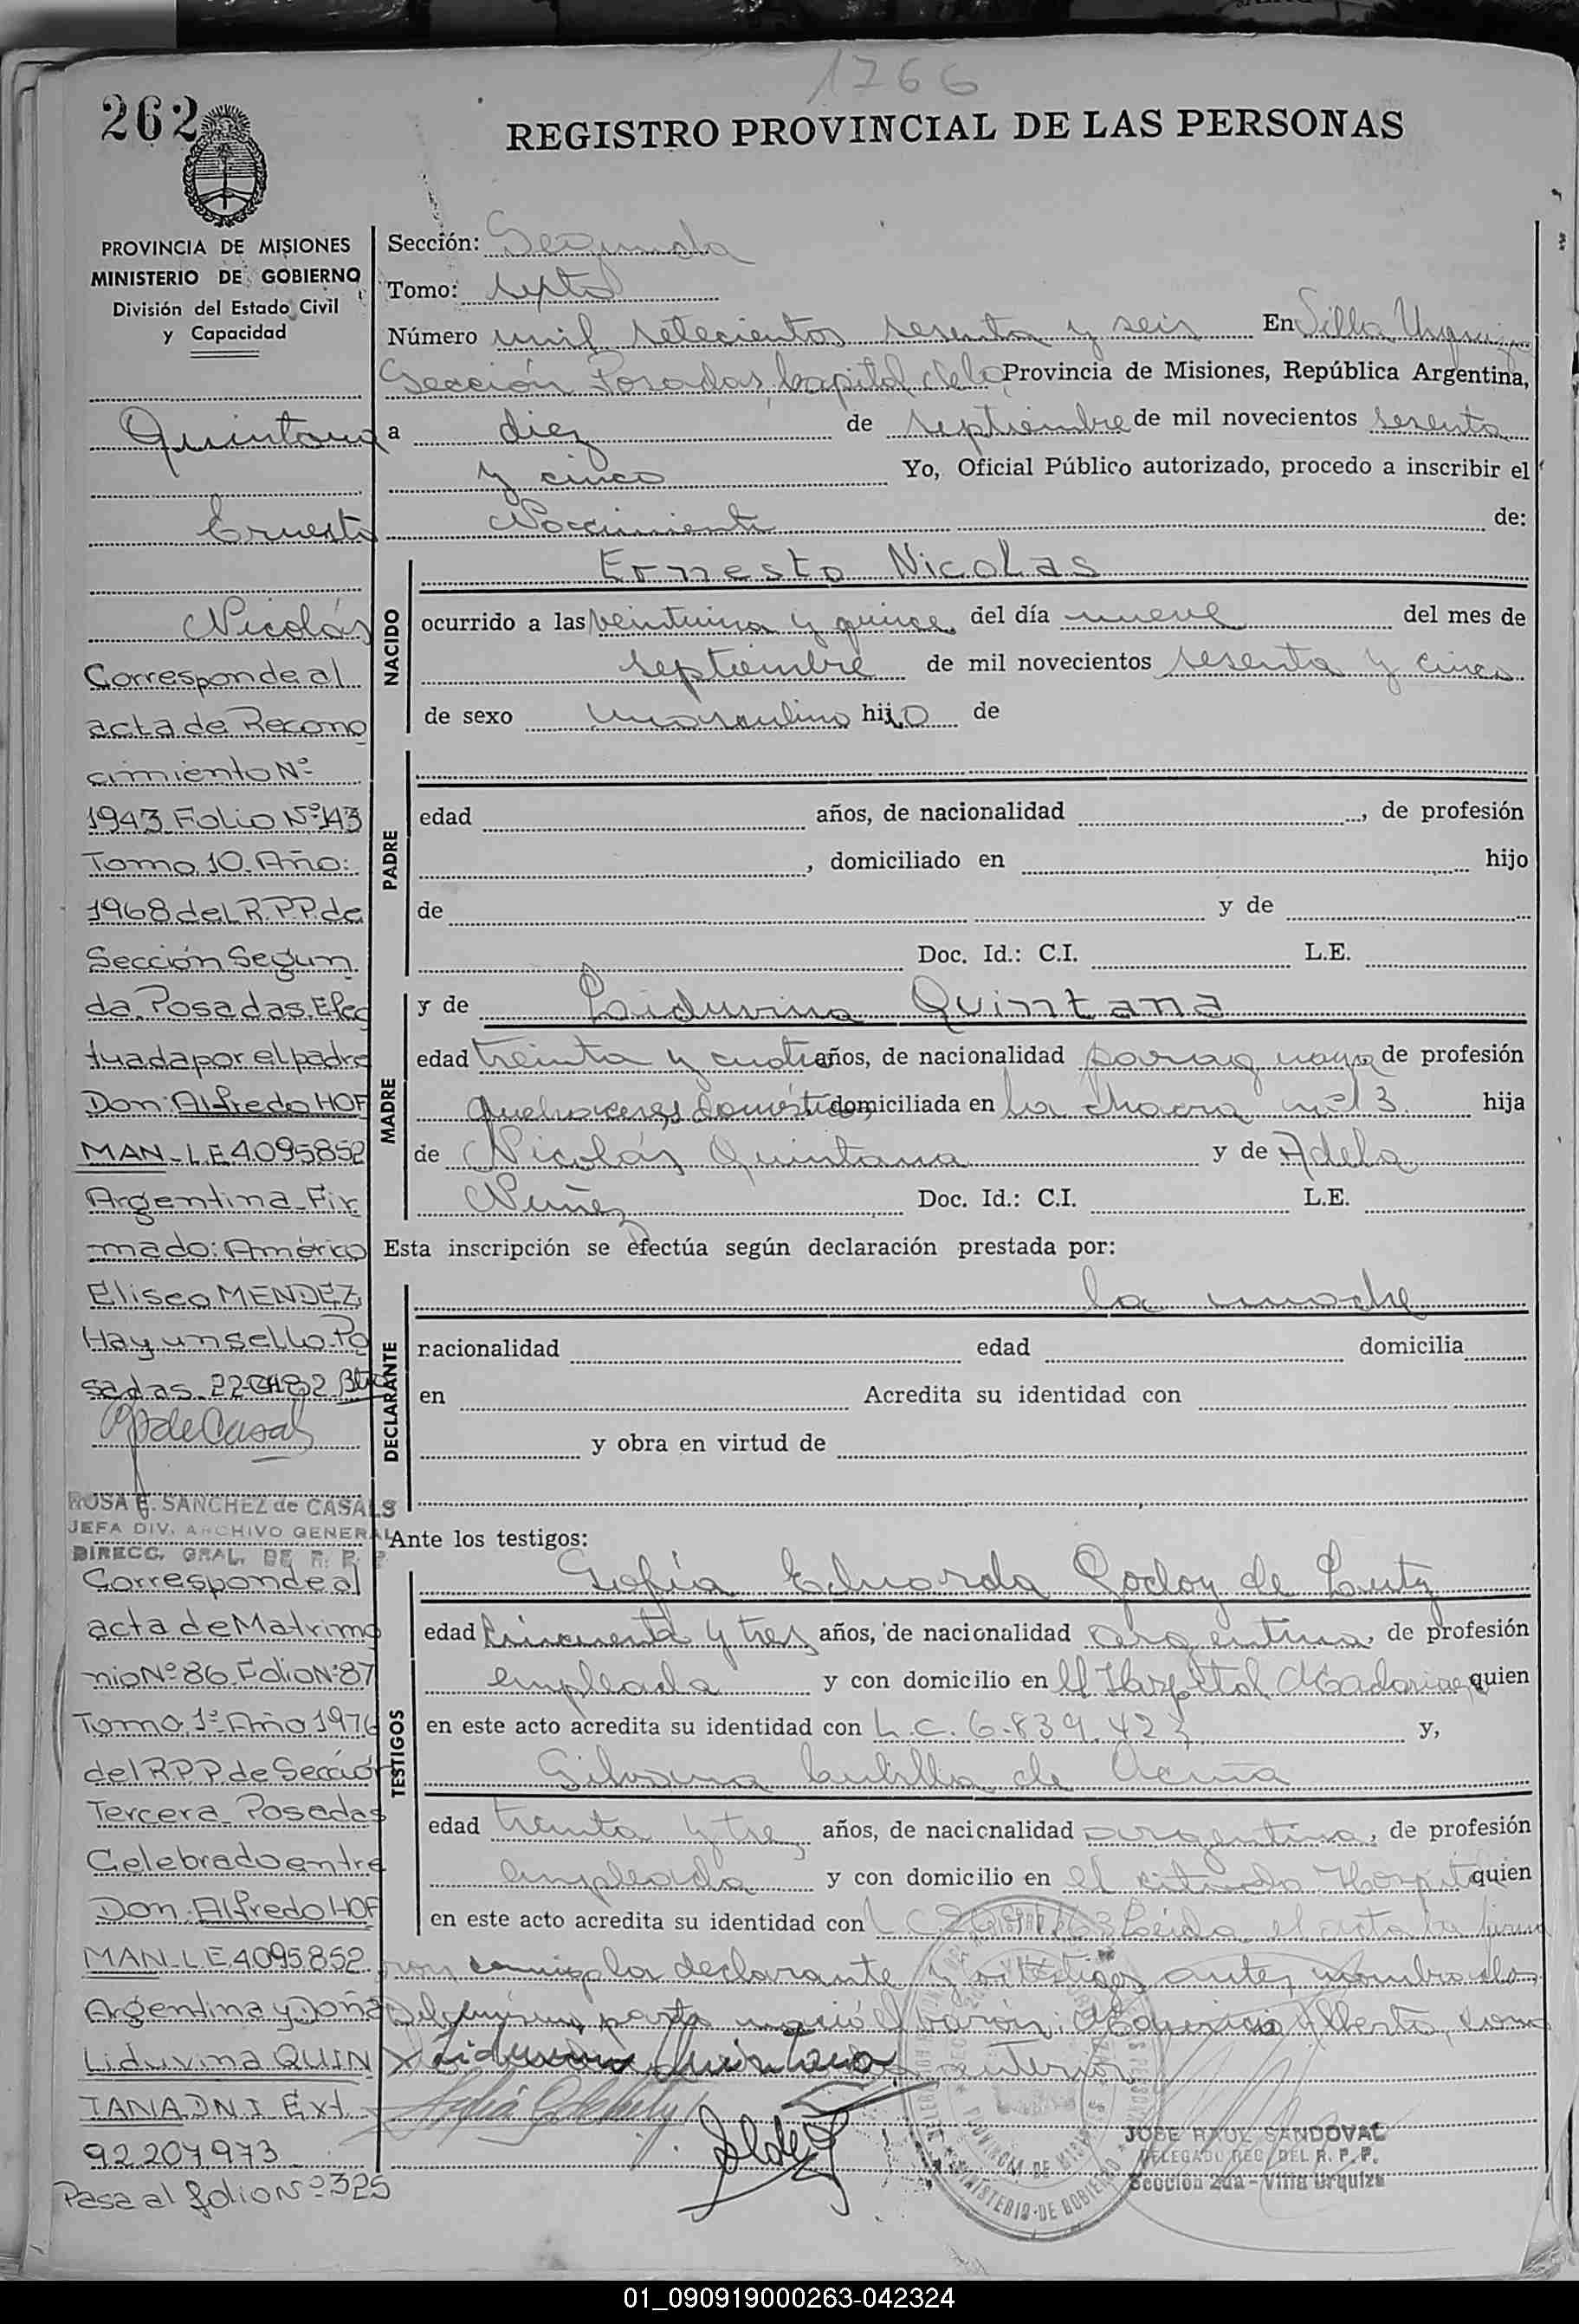 1766
262
REGISTRO PROVINCIAL DE LAS PERSONAS
PROVINCIA DE MISIONES
MINISTERIO DE GOBIERNO
División del Estado Civil
y Capacidad
Quintana
Ernesto
Nicolás
Corresponde al
acta de Recono
cimiento Nº
1943 Folio Nº 143
Tomo 10. Año:
1968 del R.P.P. de
Sección Segun
da. Posadas. Efec
tuada por el padre
Don: Alfredo HOF
MAN - L.E 4.095852
Argentina - Fir
mado: Américo
Eliseo MENDEZ
Hay un sello. Po
sadas. 22
ROSA E. SANCHEZ de CASALS
JEFA DIV. ARCHIVO GENERAL
DIRECC. GRAL. DE R. P. P
Corresponde al
acta de Matrimo
nio Nº 86. Folio Nº 87
Tomo 1º Año 1976
del R.P.P de Sección
Tercera - Posadas
Celebrado entre
Don: Alfredo HOF
MAN - L.E 4095852
Argentina y Doña
Liduvina QUIN
TANA DNI Ext.
92.207.973
Pasa al folio Nº 325
Sección: Segunda
Tomo: sexto
Número mil setecientos sesenta y seis En Villa Urquiza
Sección Posadas, Capital de la Provincia de Misiones, República Argentina,
a diez de septiembre de mil novecientos sesenta
y cinco Yo, Oficial Público autorizado, procedo a inscribir el
Nacimiento de:
NACIDO
Ernesto Nicolas
ocurrido a las veintiuna y quince del día nueve del mes de
septiembre de mil novecientos sesenta y cinco
de sexo masculino hijo de
PADRE
edad años, de nacionalidad , de profesión
, domiciliado en hijo
de y de
Doc. Id.: C.I. L.E.
MADRE
y de Liduvina Quintana
edad treinta y cuatro años, de nacionalidad paraguaya de profesión
quehaceres domésticos domiciliada en la chacra nº 13 hija
de Nicolás Quintana y de Adela
Nuñez Doc. Id.: C.I. L.E.
Esta inscripción se efectúa según declaración prestada por:
DECLARANTE
la madre
nacionalidad edad domicilia
en Acredita su identidad con
y obra en virtud de
Ante los testigos:
TESTIGOS
Sofía Eduarda Godoy de Lutz
edad cincuenta y tres años, de nacionalidad argentina, de profesión
empleada y con domicilio en el Hospital Madariaga quien
en este acto acredita su identidad con L.C. 6.839.423 y,
Silvana de Acuña
edad treinta y tres años, de nacionalidad argentina, de profesión
empleada y con domicilio en el citado Hospital quien
en este acto acredita su identidad con L.C. Leida el acta la firma
ron conmigo la declarante y testigos antes nombrados
Del mismo parto nació el varón: Mauricio Alberto,
Liduvina Quintana anterior
JOSE RAUL SANDOVAL
DELEGADO REG. DEL R. P. P.
Sección 2da - Villa Urquiza
PROVINCIA DE MISIONES
MINISTERIO DE GOBIERNO
01_090919000263-042324